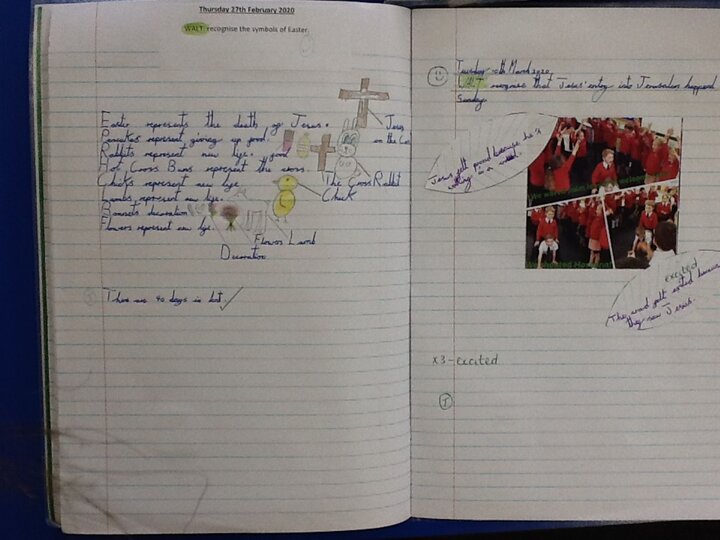 Thursday 27th February 2020
WALT: recognise the symbols of Easter.
Easter represents the death of Jesus.
represent giving up good.
Rabbits represent new lyge.
good
Hot Cross Buns represent the cross.
Chicks represent new lyge.
Lambs represent new lyge.
Bonnets decoration
Flowers represent new lyge.
Jesus
on the
The Cross Rabbit
Chick
Flowers Lamb
Decoration
There are 40 days in Lent
Tuesday 10th March 2020
WALT recognise that Jesus' entry into Jerusalem happened
Sunday.
Jesus felt proud because he is
in a week.
We
We shouted Hosanna
excited
The felt excited because
they saw Jesus.
x3-excited
I